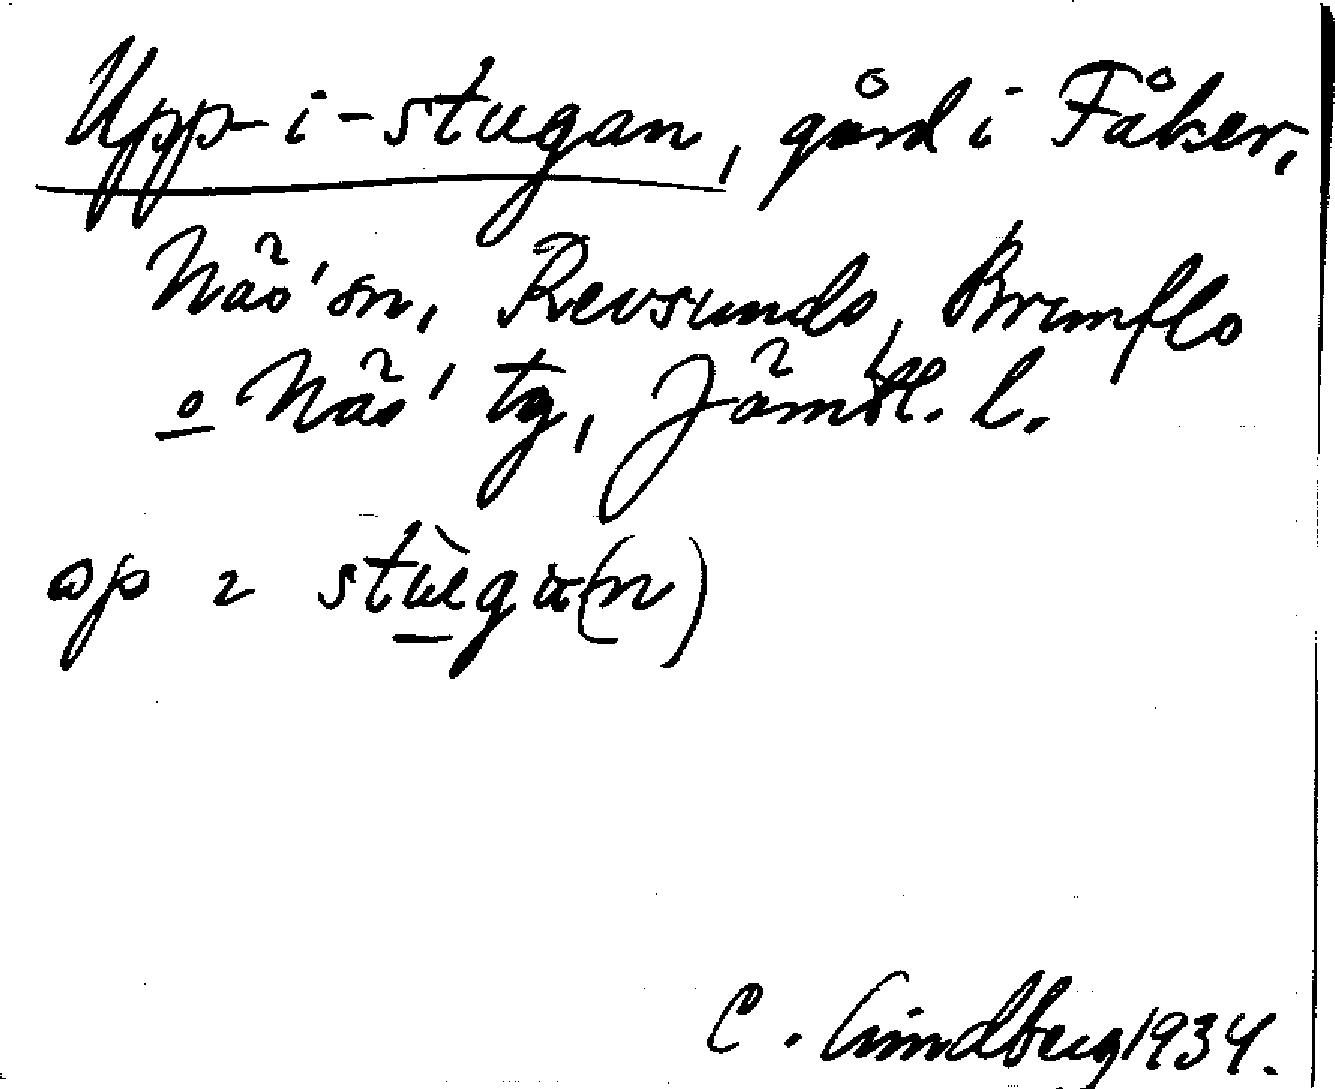 Upp-i-stugan, gård i Fåker,
Näs' sn, Revsunds, Brunflo
o Näs' tg, Jämtl. l.
op 2 stùga(n)
C. Lindberg 1934.